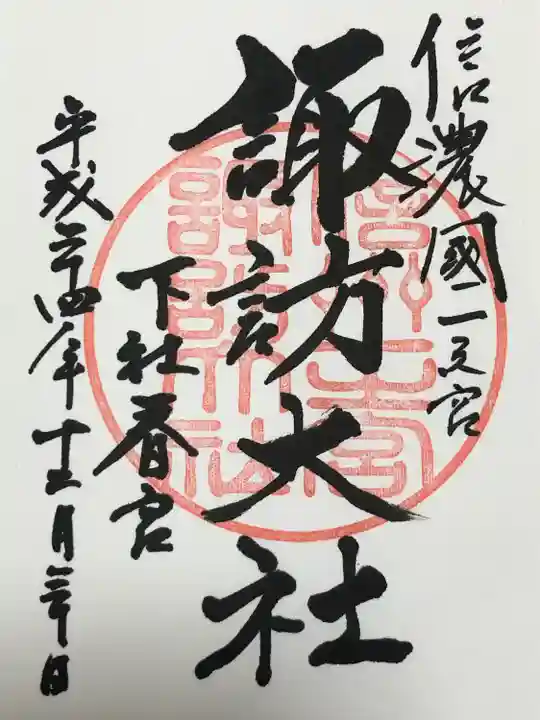 信濃國一之宮
諏訪大社
下社春宮
平成二十四年十二月三十日